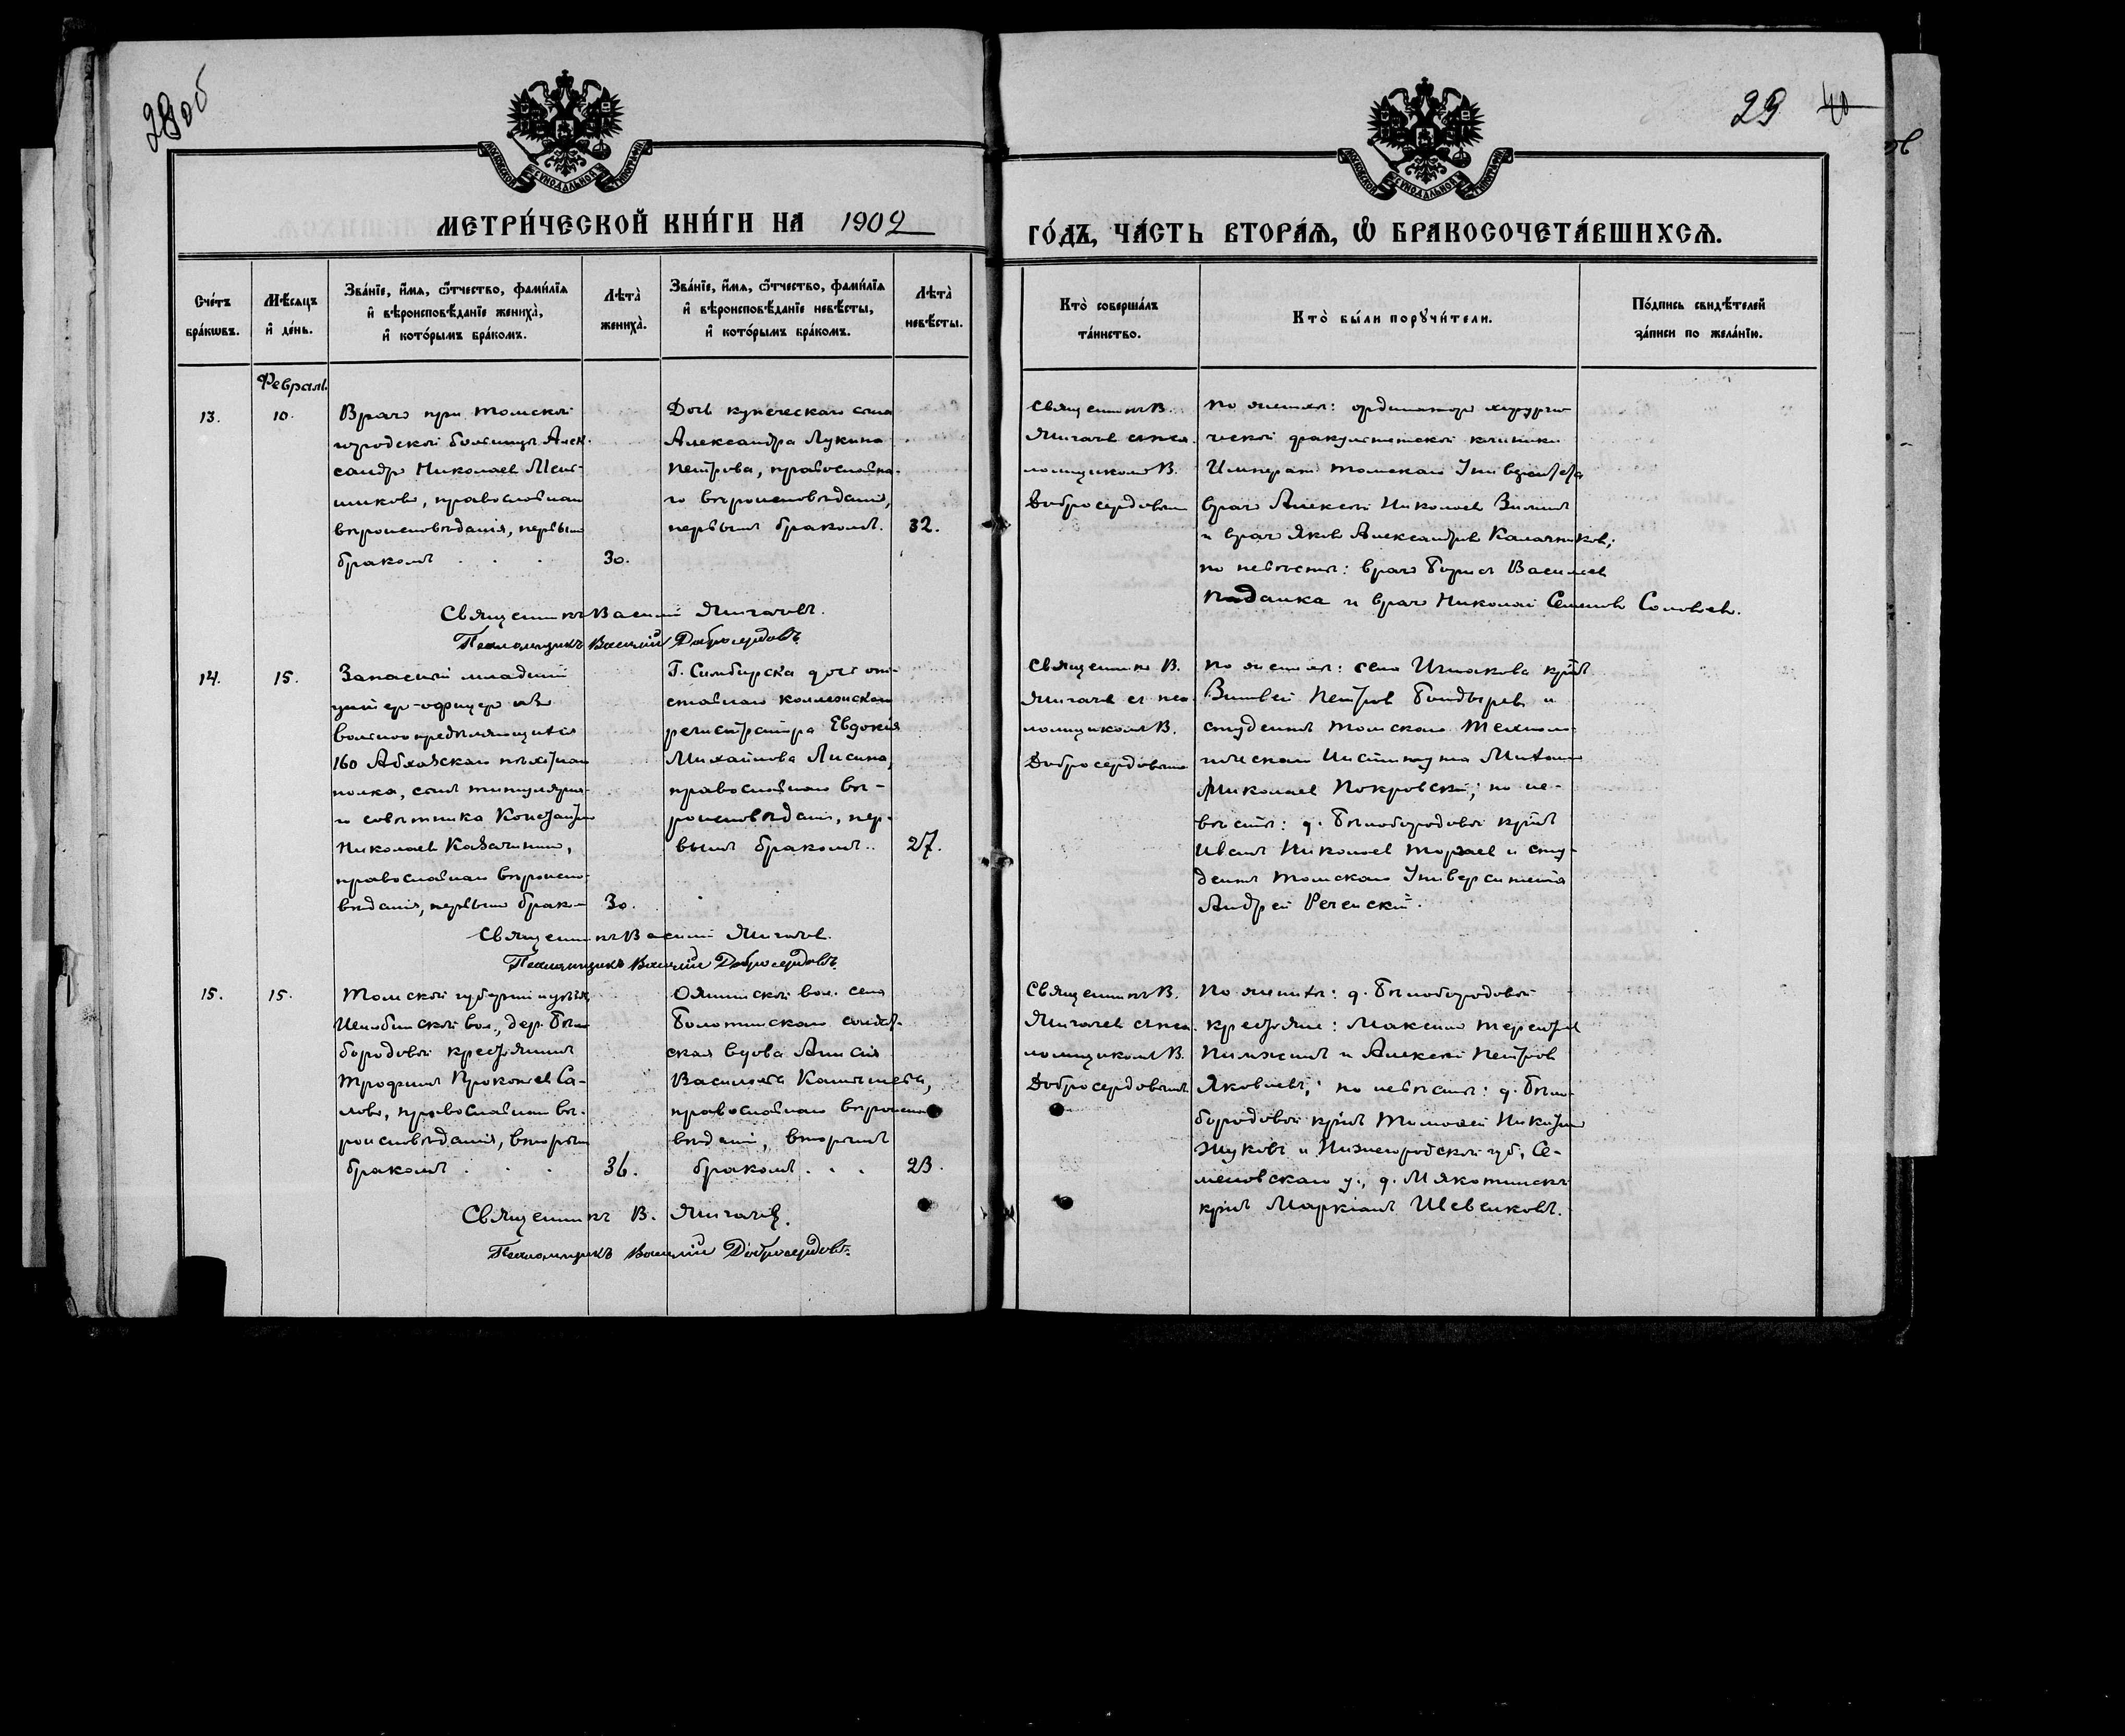 28 об
29 40
МОСКОВСКОЙ СѴНОДАЛЬНОЙ ТИПОГРАФІИ
МОСКОВСКОЙ СѴНОДАЛЬНОЙ ТИПОГРАФІИ
МЕТРИ́ЧЕСКОЙ КНИ́ГИ НА 1902
ГО́ДЪ, ЧА́СТЬ ВТОРА́Ѧ, Ѡ҆ БРАКОСОЧЕТА́ВШИХСѦ.
Сче́тъ
бра́кѡвъ.
Мѣ́сѧцъ
и҆ де́нь.
Зва́нїе, и҆́мѧ, ѻ҆́тчество, фами́лїѧ
и҆ вѣроисповѣ́данїе жениха̀,
и҆ кото́рымъ бра́комъ.
Лѣта̀
жениха̀.
Зва́нїе, и҆́мѧ, ѻ҆́тчество, фами́лїѧ
и҆ вѣроисповѣ́данїе невѣ́сты,
и҆ кото́рымъ бра́комъ.
Лѣта̀
невѣ́сты.
Кто̀ соверша́лъ
та́инство.
Кто̀ бы́ли порꙋчи́тели.
По́дпись свидѣ́телей
за́писи по жела́нїю.
Февраль
13.
10.
Врачъ при Томской
городской больницѣ Алек-
сандръ Николаевъ
православнаго
вѣроисповѣданія, первымъ
бракомъ . . .
30.
Дочь купеческаго сына
Александра Лукина
Петрова, православна-
го вѣроисповѣданія,
первымъ бракомъ.
32.
Священникъ В.
съ пса-
ломщикомъ В.
Добросердовымъ
По женихѣ: ординаторъ хирурги-
ческой факультетской клиники
Императ. Томскаго Университета
врачъ Алексѣй Николаевъ Зиминъ
и врачъ Яковъ Александровъ Калачниковъ;
по невѣстѣ: врачъ Борисъ Васильевъ
Падалка и врачъ Николай Семеновъ Соловьевъ.
Священникъ Василій
Псаломщикъ Василій Добросердовъ
14.
15.
Запасный младшій
унтеръ-офицеръ изъ
вольноопредѣляющихся
160 Абхазскаго пѣхотнаго
полка, сынъ титулярна-
го совѣтника Константинъ
Николаевъ
православнаго вѣроиспо-
вѣданія, первымъ брако-
30.
Г. Симбирска дочь от-
ставнаго коллежскаго
регистратора Евдокія
Михайлова Лисина,
православнаго вѣ-
роисповѣданія, пер-
вымъ бракомъ..
27.
Священникъ В.
съ пса-
ломщикомъ В.
Добросердовымъ
По женихѣ: села крест.
Петровъ и
студентъ Томскаго Техноло-
гическаго Института Михаилъ
Николаевъ Покровскій; по не-
вѣстѣ: д. Бѣлобородовой крест.
Иванъ Николаевъ и сту-
дентъ Томскаго Университета
Андрей
Священникъ Василій
Псаломщикъ Василій Добросердовъ
15.
15.
Томской губерніи и уѣзда,
вол., дер. Бѣло-
бородовой крестьянинъ
Трофимъ Прокопьевъ Са-
ловъ, православнаго вѣ-
роисповѣданія, вторымъ
бракомъ . . .
36.
Ояшинской вол. села
Болотинскаго солдат-
ская вдова Анисія
Васильева
православнаго вѣроиспо-
вѣданія, вторымъ
бракомъ . . .
23.
Священникъ В.
съ пса-
ломщикомъ В.
Добросердовымъ
По женихѣ: д. Бѣлобородовой
крестьяне: Максимъ Терентьевъ
и Алексѣй Петровъ
Яковлевъ; по невѣстѣ: д. Бѣло-
бородовой крест. Тимофей Никитинъ
Жуковъ и Нижегородской губ., Се-
меновскаго у., д.
крест. Маркіанъ Шевелковъ.
Священникъ В.
Псаломщикъ Василій Добросердовъ.